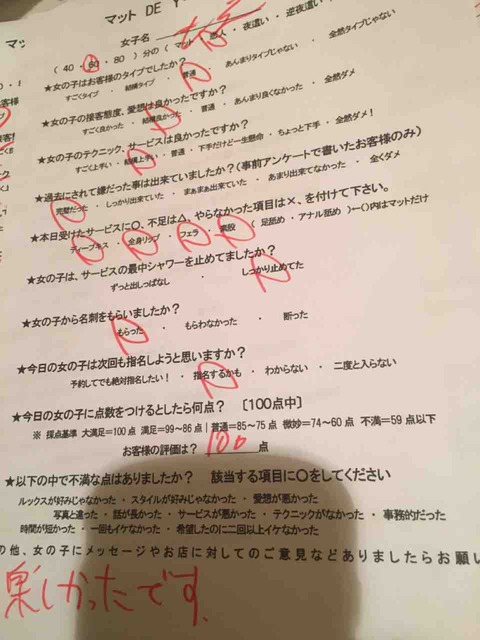 マット DE
女子名
( 40 ・ 60 ・ 80 ) 分の ( マット ・ 恋人 ・ 夜這い ・ 逆夜這い
★女の子はお客様のタイプでしたか?
すごくタイプ ・ 結構タイプ ・ 普通 ・ あんまりタイプじゃない ・ 全然タイプじゃない
★女の子の接客態度、愛想は良かったですか?
すごく良かった ・ 結構良かった ・ 普通 ・ あんまり良くなかった ・ 全然ダメ
★女の子のテクニック、サービスは良かったですか?
すごく上手い ・ 結構上手い ・ 普通 ・ 下手だけど一生懸命 ・ ちょっと下手 ・ 全然ダメ!
★過去にされて嫌だった事は出来ていましたか?(事前アンケートで書いたお客様のみ)
完璧だった ・ しっかり出来ていた ・ まぁまぁ出来ていた ・ あまり出来てなかった ・ 全くダメ
★本日受けたサービスに〇、不足は△、やらなかった項目は×、を付けて下さい。
ディープキス ・ 全身リップ ・ フェラ ・ 素股 ( 足舐め ・ アナル舐め )←()内はマットだけ
★女の子は、サービスの最中シャワーを止めてましたか?
ずっと出しっぱなし ・ しっかり止めてた
★女の子から名刺をもらいましたか?
もらった ・ もらわなかった ・ 断った
★今日の女の子は次回も指名しようと思いますか?
予約してでも絶対指名したい! ・ 指名するかも ・ わからない ・ 二度と入らない
★今日の女の子に点数をつけるとしたら何点? 〔100点中〕
※ 採点基準 大満足=100点 満足=99~86点│普通=85~75点 微妙=74~60点 不満=59点以下
お客様の評価は? 100 点
★以下の中で不満な点はありましたか? 該当する項目に〇をしてください
ルックスが好みじゃなかった ・ スタイルが好みじゃなかった ・ 愛想が悪かった
写真と違った ・ 話が長かった ・ サービスが悪かった ・ テクニックがなかった ・ 事務的だった
時間が短かった ・ 一回もイケなかった ・ 希望したのに二回以上イケなかった
の他、女の子にメッセージやお店に対してのご意見などありましたらお願い
楽しかったです.